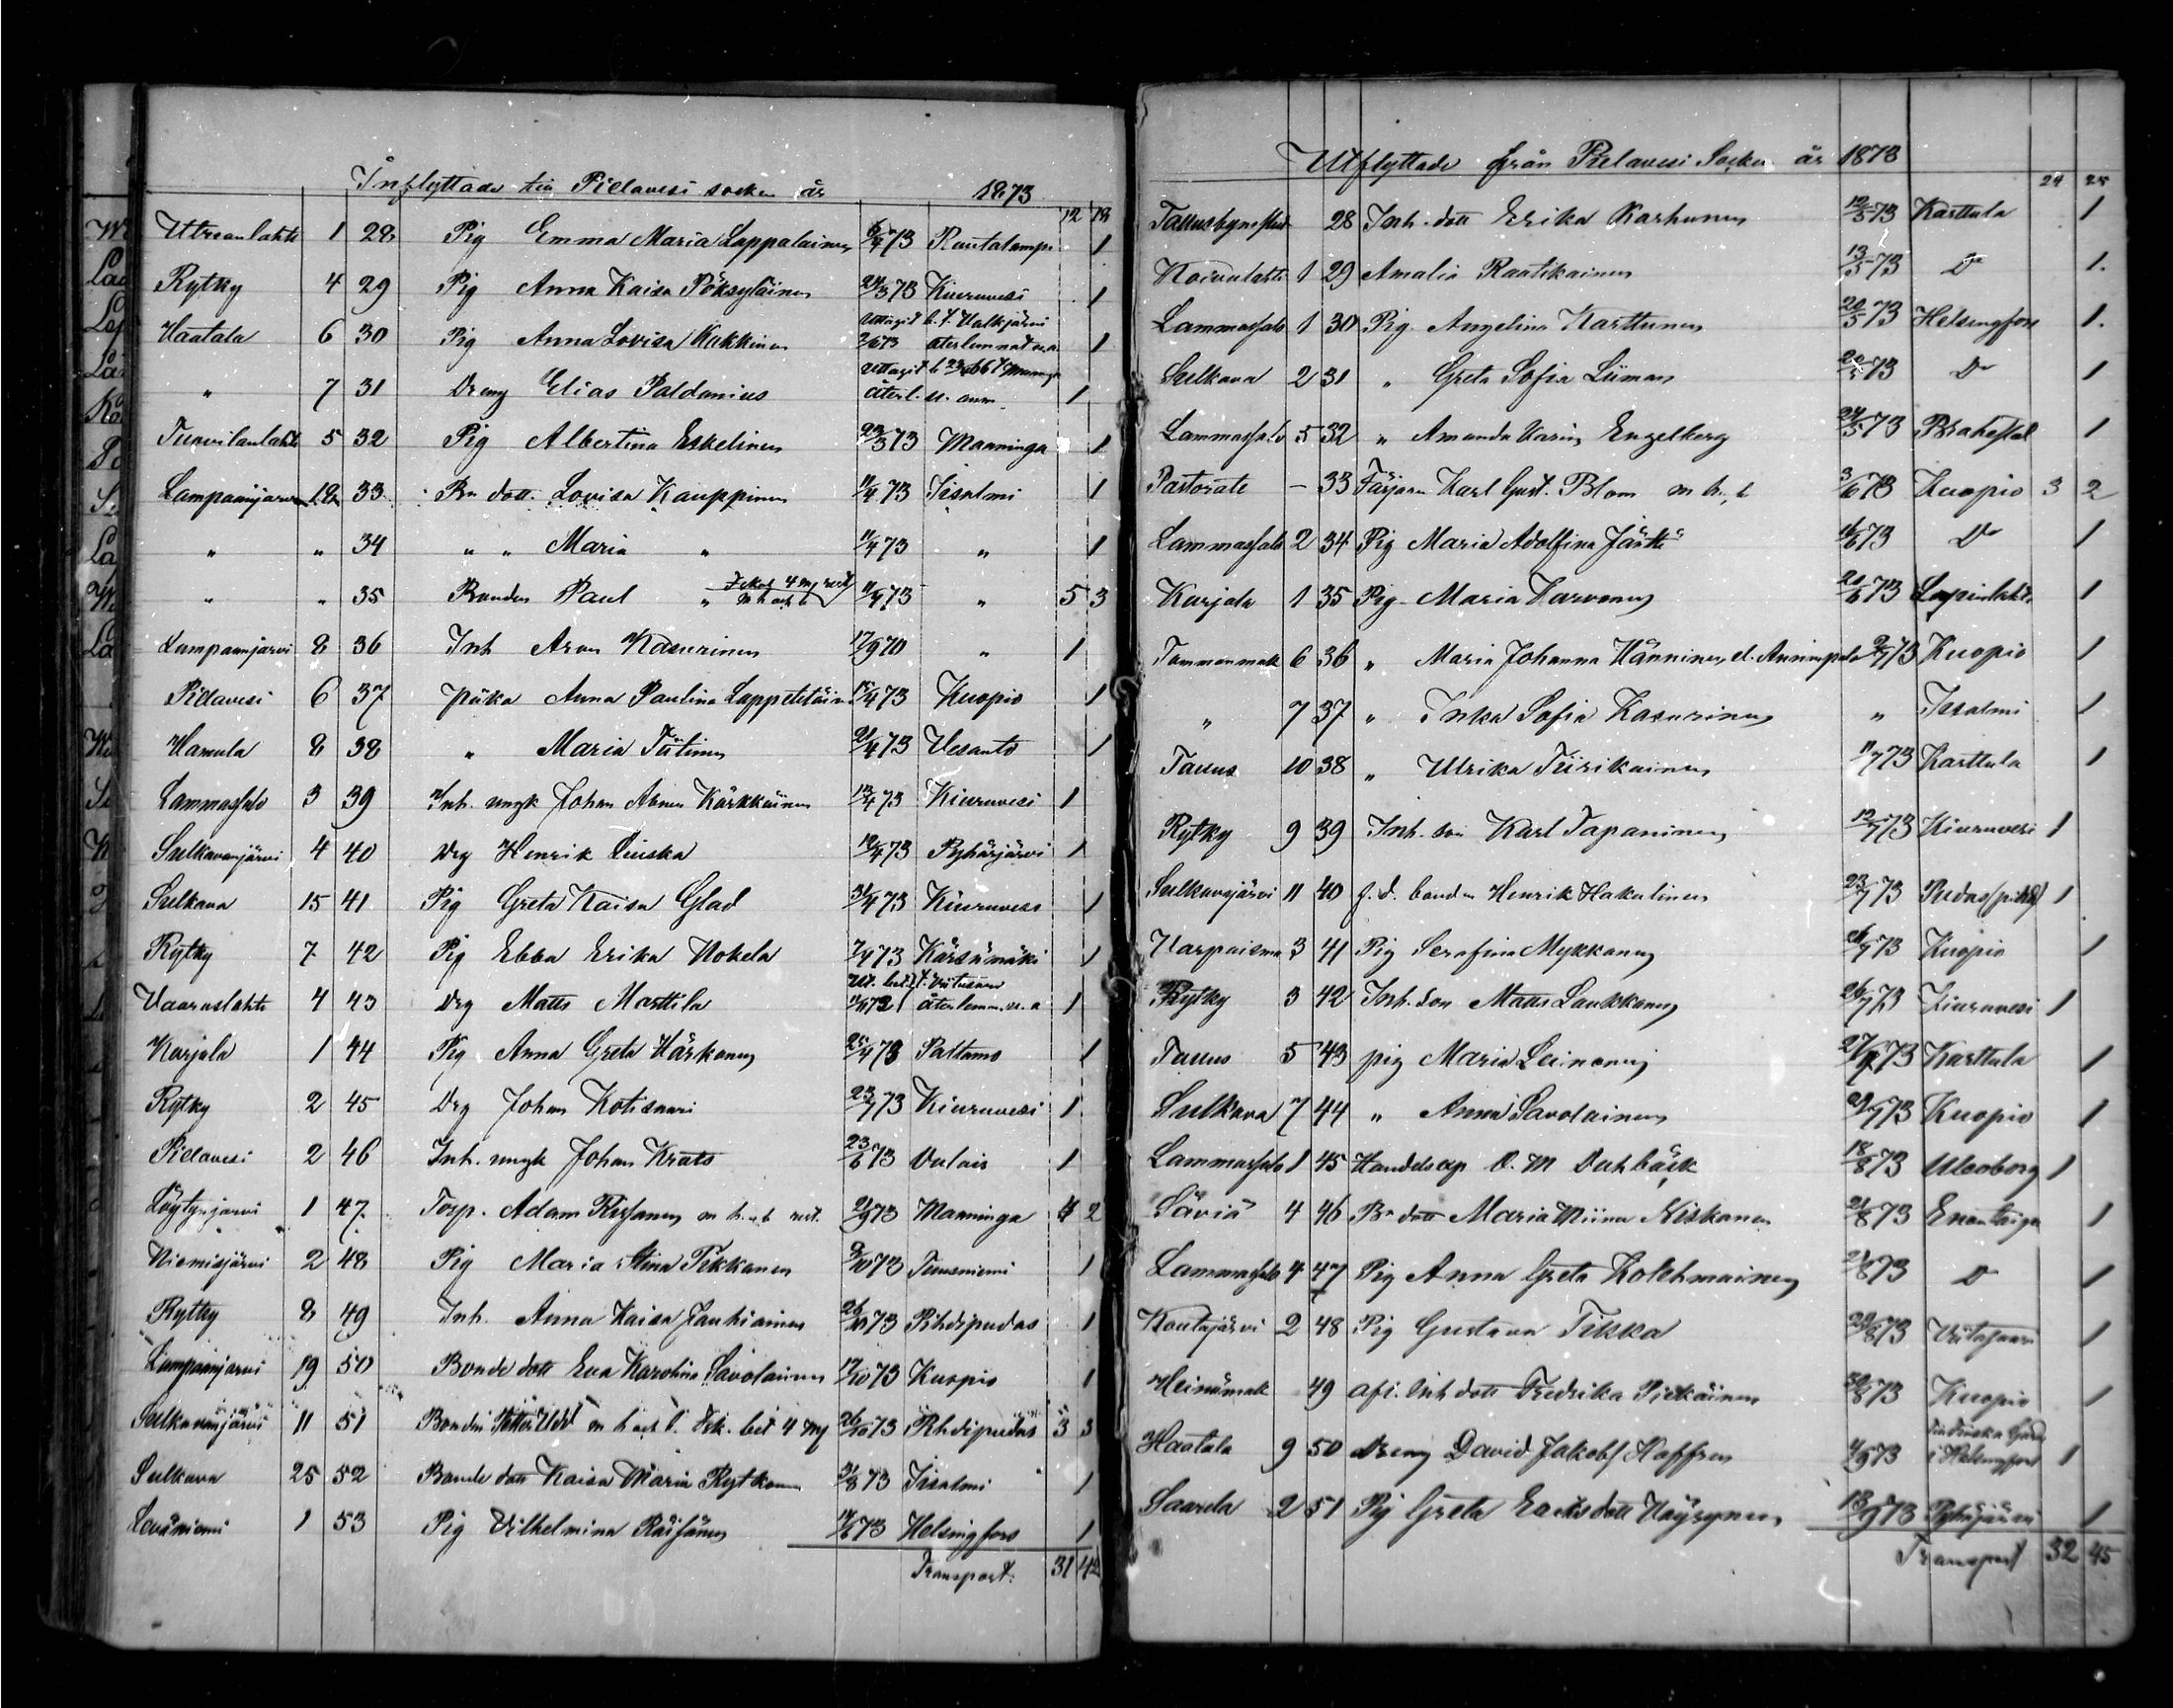 Inflyttade till Pielavesi socken år 1873
12 18
Utrianlahti 1 28 Pig Emma Maria Lappalainen 6/4 73 Rautalampi 1
Rytky 4 29 Pig Anna Kaisa Pöksyläinen 24/3 73 Kiuruvesi 1
uttagit b. t. Valkjärvi
Haatala 6 30 Pig Anna Lovisa Kukkinen återlemnat u. a. 1
uttagit b t Maninga
" 7 31 Dreng Elias Paldanius återl. u. anm. 1
Tuovilanlahti 5 32 Pig Albertina Eskelinen 23/3 73 Maaninga 1
Lampaanjärvi 18 33 Bn dott. Lovisa Kauppinen 11/4 73 Iisalmi 1
" " 34 " " Maria " 11/4 73 " 1
" " 35 Bonden Paul " m h och b 11/4 73 " 5 3
Lampaanjärvi 8 36 Inh Aron Kasurinen 17/9 70 " 1
Pielavesi 6 37 piika Anna Paulina Lappeteläinen 15/4 73 Kuopio 1
Hamula 8 38 " Maria Tiitinen 21/4 73 Vesanto 1
Lammassalo 3 39 Inh. yngk Johan Abner Kärkkäinen 13/4 73 Kiuruvesi 1
Sulkavanjärvi 4 40 Drg Henrik Liuska 12/4 73 Pyhäjärvi 1
Sulkava 15 41 Pig Greta Kaisa Glad 31/4 73 Kiuruvesi 1
Rytky 7 42 Pig Ebba Erika Hokela 7/4 73 Kärsämäki 1
Vaaraslahti 4 43 Drg Matts Marttila återlemn. u. a 1
Karjala 1 44 Pig Anna Greta Härkönen 25/4 73 Paltamo 1
Rytky 2 45 Drg Johan Kotisaari 23/7 73 Kiuruvesi 1
Pielavesi 2 46 Inh. yngk Johan Krats 23/6 73 1
Löytynjärvi 1 47 Torp. Adam Rissanen m h. o b 2/9 73 Maaninga 4 2
Niemisjärvi 2 48 Pig Maria Stina Pekkanen 9/10 73 Tuusniemi 1
Rytky 8 49 Inh. Anna Kaisa Jauhiainen 26/10 73 Pihdipudas 1
Lampaanjärvi 19 50 Bonde dott Eva Karolina Savolainen 17/10 73 Kuopio 1
Sulkavanjärvi 11 51 Bonden Petter m h och b. 4 mk 26/10 73 Pihdipudas 3 3
Sulkava 25 52 Bonde dott Kaisa Maria Rytkönen 31/8 73 Iisalmi 1
Leväniemi 1 53 Pig Vilhelmina Räisänen 14/6 73 Helsingfors 1
Transport: 31 42
Utflyttade från Pielavesi Socken år 1873
24 25
28 Inh. dott Erika Karhunen 12/5 73 Karttula 1
Koivulahti 1 29 Amalia Raatikainen 13/5 73 Do 1.
Lammassalo 1 30 Pig Angelina Karttunen 20/5 73 Helsingfors 1.
Sulkava 2 31 " Greta Sofia Liiman 20/5 73 Do 1
Lammassalo 5 32 " Amanda Karin Engelberg 24/5 73 Brahestad 1
Pastorate – 33 Färjaren Karl Gust. Blom m h. b 3/6 73 Kuopio 3 2
Lammassalo 2 34 Pig Maria Adolfina Jäntti 16/6 73 Do 1
Karjala 1 35 Pig Maria Karvonen 20/6 73 Lapinlahti 1
Tommonmäk 6 36 " Maria Johanna Hänninen 2/7 73 Kuopio 1
" 7 37 " Inka Sofia Kasurinen " Iisalmi 1
Taxus 10 38 " Ulrika Tiirikainen 11/7 73 Karttula 1
Rytky 9 39 Inh. son Karl Tapaninen 12/7 73 Kiuruvesi 1
Sulkavajärvi 11 40 f. d. bonden Henrik Hakulinen 23/7 73 Pudas 1
Varpaisma 3 41 Pig Serafina Mykkänen 26/7 73 Kuopio 1
Rytky 3 42 Inh. son Matts Laukkanen 26/7 73 Kiuruvesi 1
Taxus 5 43 pig Maria Leinonen 27/7 73 Karttula 1
Sulkava 7 44 " Anna Savolainen 29/7 73 Kuopio 1
Lammassalo 1 45 Handelsexp O. M Dahlbäck 18/8 73 Uleåborg 1
Säviä 4 46 Bn dott Maria Miina Kiskonen 21/8 73 1
Lammassalo 4 47 Pig Anna Greta Kolehmainen 21/8 73 Do 1
Koutajärvi 2 48 Pig Gustava Tikka 29/8 73 Viitasaari 1
Heinämäk 49 afl. Inh dott Fredrika Pietkäinen 30/8 73 Kuopio 1
Haatala 9 50 Dreng David Jakobs Hoffren 4/9 73 i Helsingfors 1
Saarela 2 51 Pig Greta Eriksdott Häyrynen 13/9 73 Pyhäjärvi 1
Transport 32 45